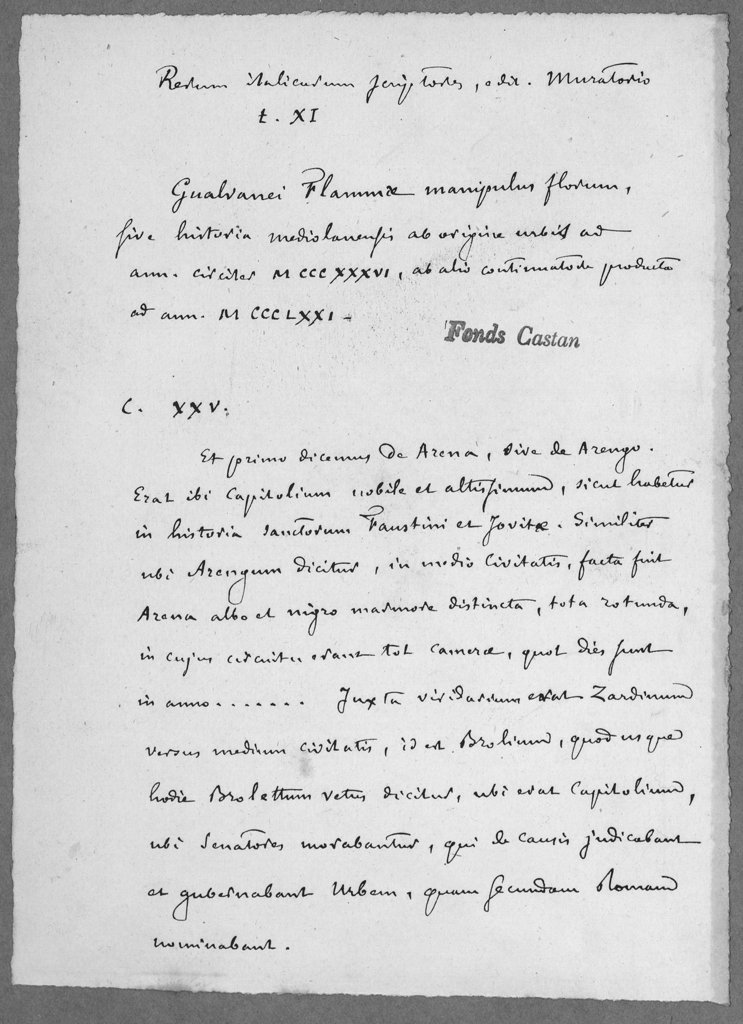 Rerum italicarum scriptores, edit. Muratorio
t. XI
Gualvanei Flammæ manipulus florum,
sive historia mediolanensis ab origine urbis ad
ann. circiter MCCCXXXVI, ab alio continuatore producta
ad ann. MCCCLXXI -
Fonds Castan
C. XXV.
Et primo dicemus de Arena, sive de Arengo.
Erat ibi Capitolium nobile et altissimum, sicut habetur
in historia sanctorum Faustini et Jovitæ. Similiter
ubi Arengum dicitur, in medio Civitatis, facta fuit
Arena albo et nigro marmore distincta, tota rotunda,
in cujus circuitu erant tot cameræ, quot dies sunt
in anno....... Juxta viridarium erat Zardinum
versus medium civitatis, id est Brolium, quod usque
hodie Brolettum vetus dicitur, ubi erat Capitolium,
ubi Senatores morabantur, qui de causis judicabant
et gubernabant Urbem, quam secundam Romam
nominabant.